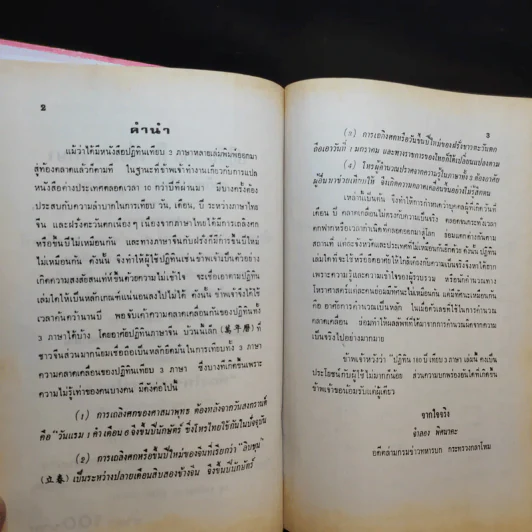 2
คำนำ
แม้ว่าได้มีหนังสือปฏิทินเทียบ 3 ภาษาหลายเล่มพิมพ์ออกมา
สู่ท้องตลาดแล้วก็ตามที ในฐานะที่ข้าพเจ้าทำงานเกี่ยวกับการแปล
หนังสือต่างประเทศตลอดเวลา 10 กว่าปีที่ผ่านมา มีบางครั้งต้อง
ประสบกับความลำบากในการเทียบ วัน, เดือน, ปี ระหว่างภาษาไทย
จีน และฝรั่งตะวันตกเนืองๆ เนื่องจากภาษาไทยได้มีการเถลิงศก
หรือขึ้นปีไม่เหมือนกัน และทางภาษาจีนกับฝรั่งก็มีการขึ้นปีใหม่
ไม่เหมือนกัน ดังนั้น จึงทำให้ผู้ใช้ปฏิทินเช่นข้าพเจ้าเป็นตัวอย่าง
เกิดความสงสัยสนเท่ห์ขึ้นด้วยความไม่เข้าใจ จะเชื่อเอาตามปฏิทิน
เล่มใดให้เป็นหลักเกณฑ์แน่นอนลงไปไม่ได้ ดังนั้น ข้าพเจ้าจึงได้ใช้
เวลาค้นคว้านานปี พอจับเค้าความคลาดเคลื่อนของปฏิทินทั้ง
3 ภาษาได้บ้าง โดยอาศัยปฏิทินภาษาจีน บ้วนนี้เล็ก (萬年曆) ที่
ชาวจีนส่วนมากนิยมเชื่อถือเป็นหลักยึดมั่นในการเทียบทั้ง 3 ภาษา
ความคลาดเคลื่อนของปฏิทินเทียบ 3 ภาษา ซึ่งบางทีเกิดขึ้นเพราะ
ความไม่รู้เท่าของคนบางคน มีดังต่อไปนี้
(1) การเถลิงศกของศาสนาพุทธ ต้องหลังจากวันสงกรานต์
คือ "วันแรม 1 ค่ำเดือน 6 จึงขึ้นปีนักษัตร์ ซึ่งโหรไทยใช้กันในปัจจุบัน
(2) การเถลิงศกหรือขึ้นปีใหม่ของจีนที่เรียกว่า "ลิบชุน"
(立春) เป็นระหว่างปลายเดือนสิบสองข้างจีน จึงขึ้นปีนักษัตร์
3
(3) การเถลิงศกหรือวันขึ้นปีใหม่ของฝรั่งชาวตะวันตก
ถือเอาวันที่ 1 มกราคม และทางราชการของไทยก็ได้เปลี่ยนแปลงตาม
(4) โหรผู้ชำนาญปราศจากความรู้ในภาษาทั้ง 3 ต้องอาศัย
ผู้อื่นมาช่วยเทียบให้ จึงเกิดความคลาดเคลื่อนขึ้นอย่างไม่รู้สึกตน
เหล่านี้เป็นต้น จึงทำให้การกำหนดว่าบุคคลผู้ที่เกิดวันที่
เดือน ปี คลาดเคลื่อนไม่ตรงกับความเป็นจริง ตลอดจนกระทั่งเวลา
ตกฟากหรือเวลากำเนิดที่คลอดออกมาสู่โลก ย่อมแตกต่างกันตาม
สถานที่ แต่ละจังหวัดและประเทศที่ไม่เหมือนกันอีกด้วย ดังนั้น ปฏิทิน
เล่มใดที่จะใช้หรือถืออาศัยให้ใกล้เคียงกับความเป็นจริงจึงหาได้ยาก
เพราะความรู้และความเข้าใจของผู้รวบรวม หรือนักคำนวณทาง
โหราศาสตร์แต่ละคนย่อมมีทัศนะไม่เหมือนกัน แต่มีทัศนะเหมือนกัน
คือ อาศัยการคำนวณเป็นหลัก ในเมื่อตัวเลขที่ใช้ในการคำนวณ
คลาดเคลื่อน ย่อมทำให้ผลลัพธ์ที่ได้มาจากการคำนวณผิดจากความ
เป็นจริงไปอย่างมากมาย
ข้าพเจ้าหวังว่า "ปฏิทิน 100 ปี เทียบ 3 ภาษา เล่มนี้ คงเป็น
ประโยชน์กับผู้ใช้ไม่มากก็น้อย ส่วนความบกพร่องอันใดที่เกิดขึ้น
ข้าพเจ้าขอน้อมรับแต่ผู้เดียว
จากใจจริง
จำลอง พิศนาคะ
อดีตล่ามกรมข่าวทหารบก กระทรวงกลาโหม